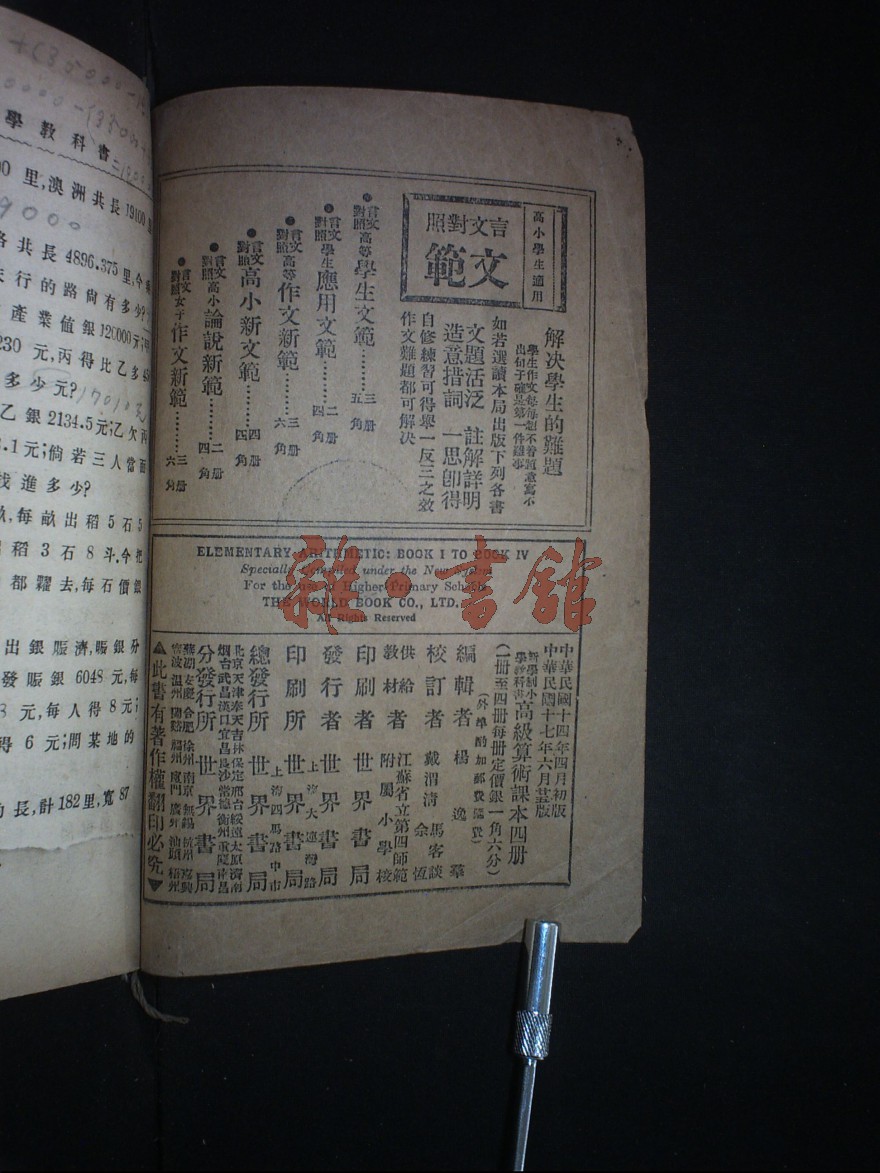 學教科書二
00里,澳洲共長19100
9000
路共長4896.375里,今
行的路尙有多少?
產業値銀120000元;
230元,丙得比乙多
多少元?
乙銀2134.5元;乙欠丙
.1元;倘若三人當面
找進多少?
畝,每畝出稻5石5
稻3石8斗.今把
都糶去,每石價銀
出銀賑濟,賑銀分
發賑銀6048元,每
元,每人得8元;
得6元;問某地的
長,計182里,寬87
高小學生適用
言文對照
文範
解決學生的難題
學生作文每每想不着題意寫不
出句子確是第一件難事
如若選讀本局出版下列各書
文題活泛 註解詳明
造意措詞 一思卽得
自修練習可得舉一反三之效
作文難題都可解決
言文對照高等學生文範……三册五角
言文對照學生應用文範……二册四角
言文對照高等作文新範……三册六角
言文對照高小新文範……四册四角
言文對照高小論說新範……二册四角
言文對照女子作文新範……三册六角
ELEMENTARY ARITHMETIC: BOOK I TO BOOK IV
Specially Compiled under the New System
For the use of Higher Primary Schools
THE WORLD BOOK CO., LTD.
All Rights Reserved
雜·書館
中華民國十四年四月初版
中華民國十七年六月廿五版
新學制小學教科書高級算術課本四册
(一册至四册每册定價銀一角六分)
(外埠酌加郵費匯費)
編輯者 楊逸羣
校訂者 戴渭清 馬客談 余恆
供給教材者 江蘇省立第四師範附屬小學校
印刷者 世界書局
發行者 世界書局
印刷所 上海大連灣路世界書局
總發行所 上海四馬路中市世界書局
北京天津奉天吉林保定邢台綏遠太原濟南
烟台武昌漢口宜昌長沙常德衡州重慶南昌
分發行所 世界書局
蕪湖安慶合肥徐州南京無錫杭州嘉興
寧波温州蘭谿福州廈門廣州汕頭梧州
▲此書有著作權翻印必究▼